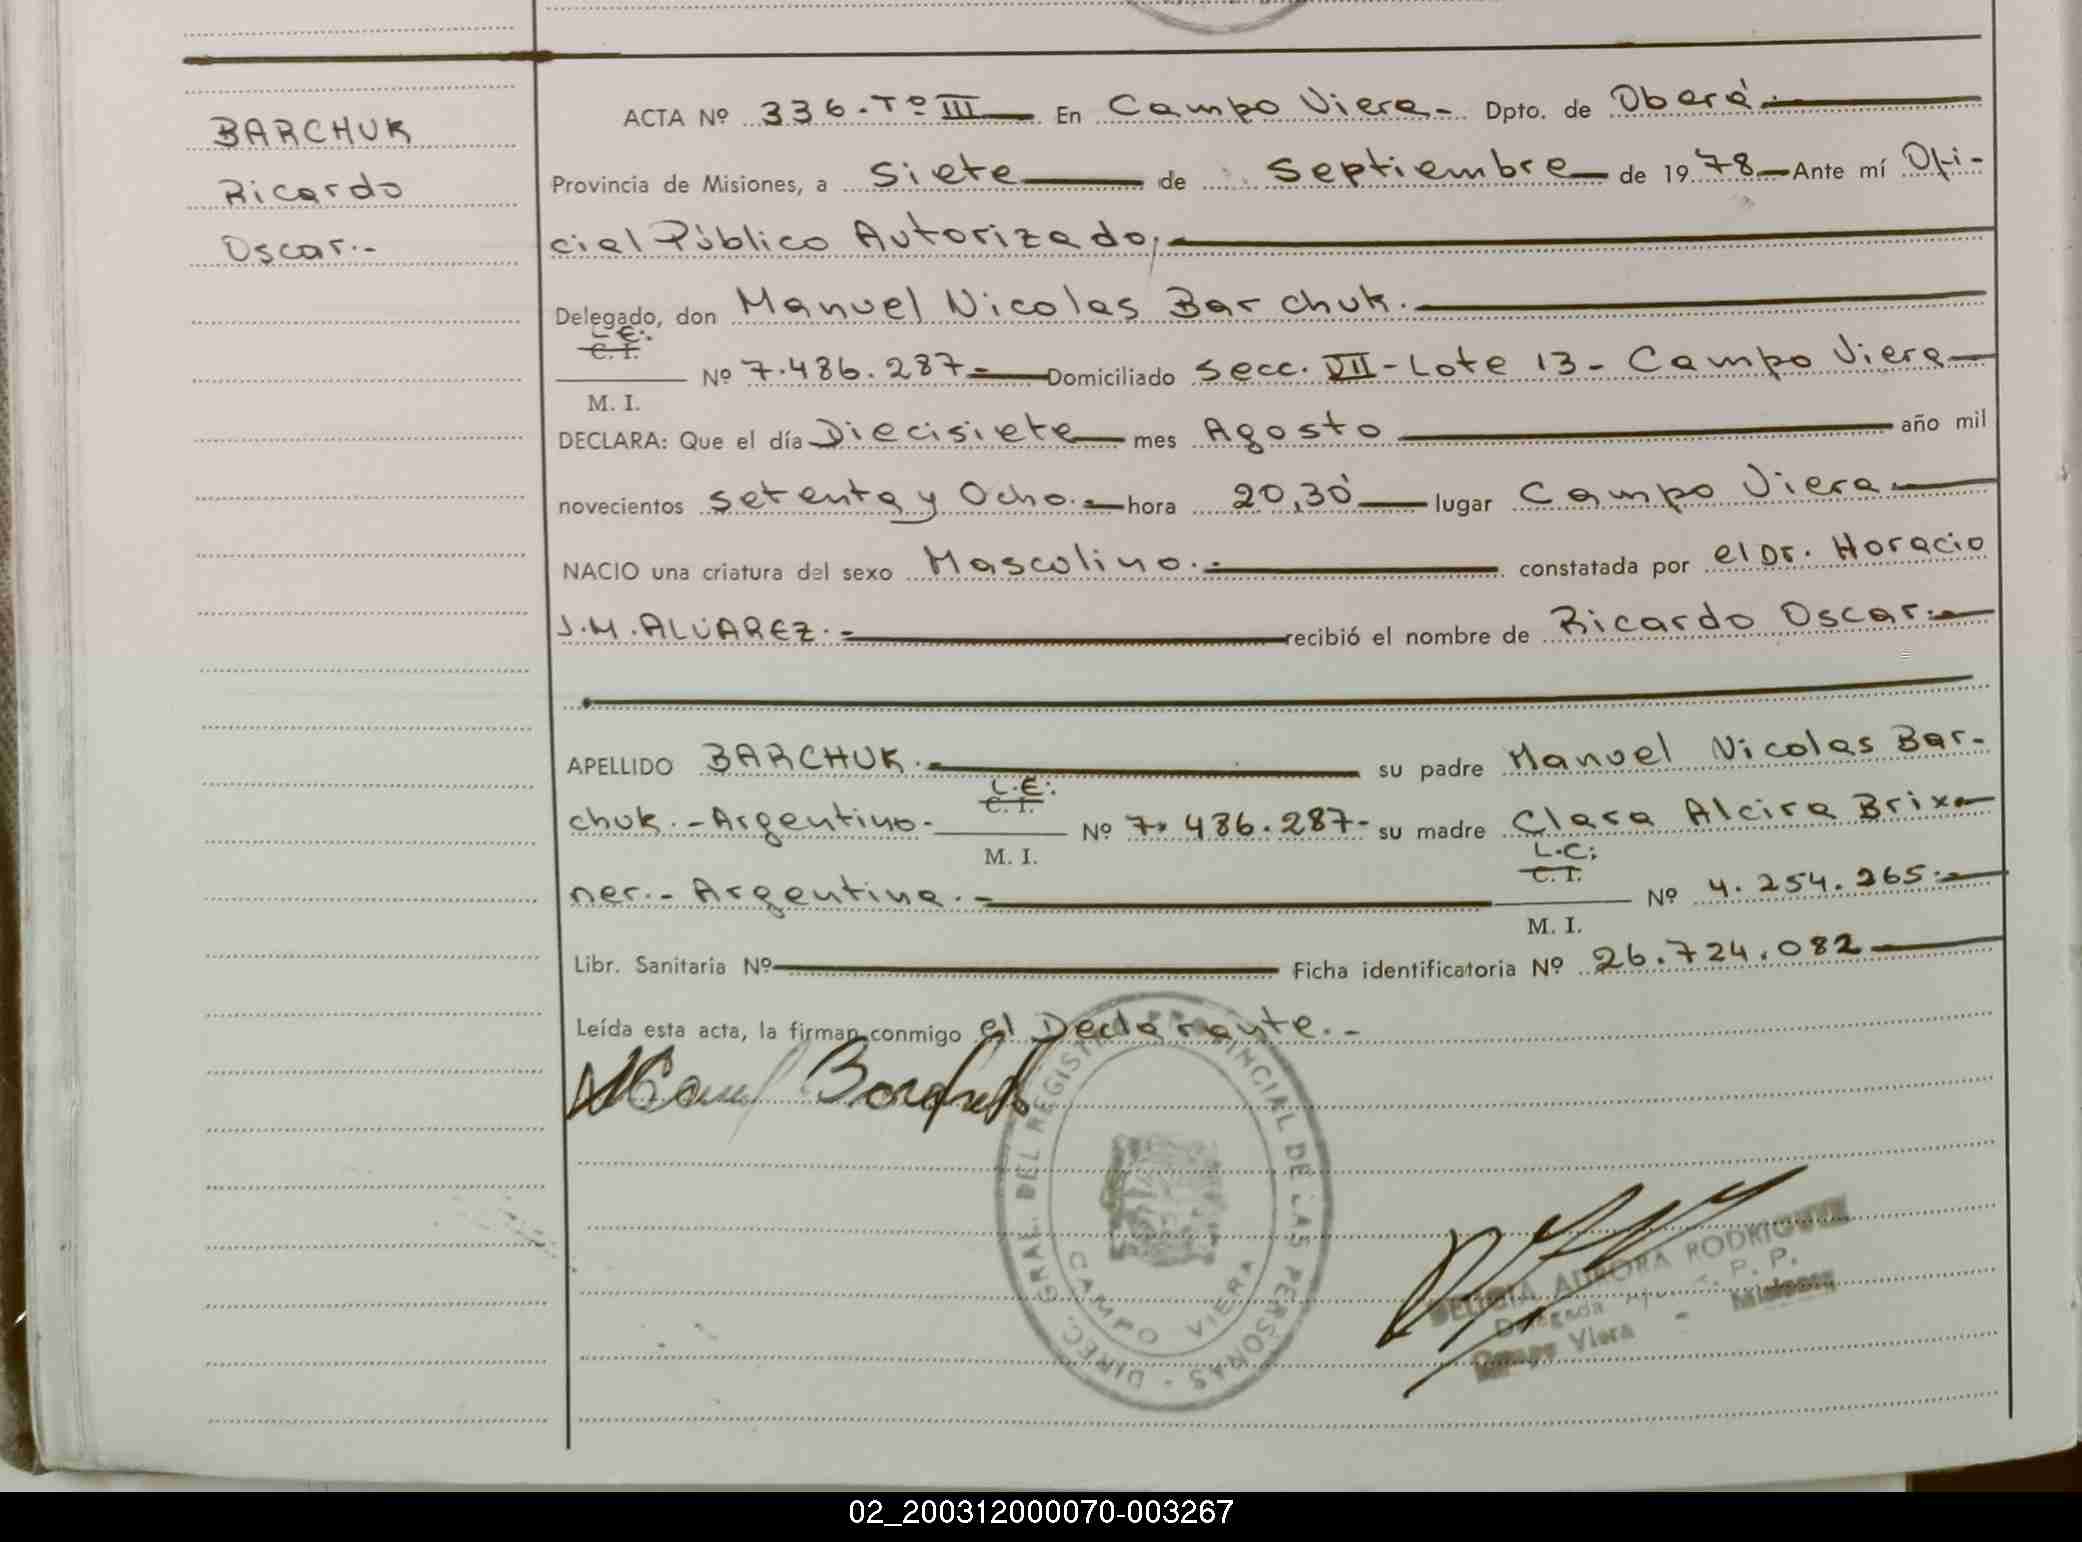 BARCHUK
Ricardo
Oscar.-
ACTA Nº 336-Tº III En Campo Viera- Dpto. de Oberá
Provincia de Misiones, a Siete de Septiembre de 1978 Ante mí Ofi-
cial Público Autorizado,
Delegado, don Manuel Nicolas Barchuk.
L.E.:
C. I.
Nº 7.486.287- Domiciliado Secc. VII-Lote 13- Campo Viera
M. I.
DECLARA: Que el día Diecisiete mes Agosto año mil
novecientos setenta y Ocho.- hora 20,30 lugar Campo Viera
NACIO una criatura del sexo Masculino.- constatada por el Dr. Horacio
J.M.ALVAREZ.- recibió el nombre de Ricardo Oscar.-
APELLIDO BARCHUK.- su padre Manuel Nicolas Bar-
L.E.:
C. I.
chuk.-Argentino- Nº 7.486.287- su madre Clara Alcira Brix-
M. I.
L.C:
C. I.
ner.- Argentina.- Nº 4.254.265.-
M. I.
Libr. Sanitaria Nº Ficha identificatoria Nº 26.724.082
Leída esta acta, la firman conmigo el Declarante.-
Manuel Barchuk
DIREC. GRAL. DEL REGISTRO PROVINCIAL DE LAS PERSONAS -
CAMPO VIERA
AURORA RODRIGUEZ
Delegada P. P.
Campo Viera - Misiones
02_200312000070-003267